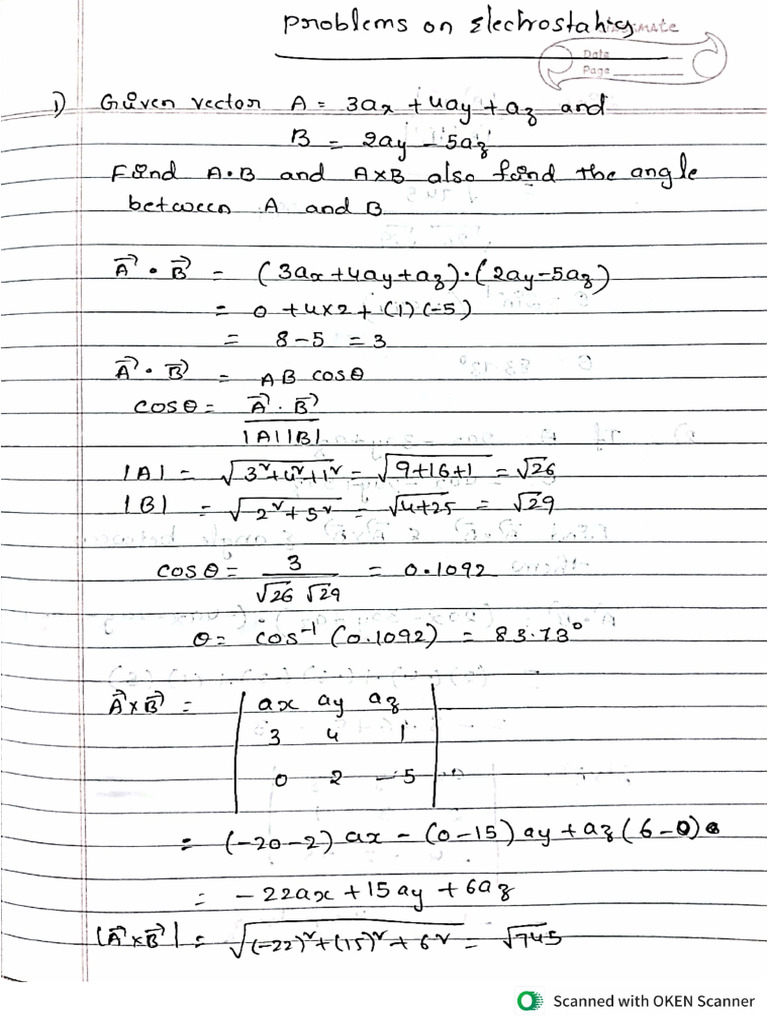 Problems on Electrostatics
Date
Page
1) Given vector A = 3ax + 4ay + az and
B = 2ay - 5az
Find A.B and A×B also find the angle
between A and B
A⃗ . B⃗ = (3ax+4ay+az).(2ay-5az)
= 0 + 4×2 + (1)(-5)
= 8-5 = 3
A⃗ . B⃗ = AB cosθ
cosθ = A⃗ . B⃗ / |A||B|
|A| = √3²+4²+1² = √9+16+1 = √26
|B| = √2²+5² = √4+25 = √29
cosθ = 3 / √26 √29 = 0.1092
θ = cos⁻¹(0.1092) = 83.73°
A⃗×B⃗ = | ax ay az |
3 4 1
0 2 -5
= (-20-2) ax - (0-15) ay + az (6-0)
= -22ax + 15ay + 6az
|A⃗×B⃗| = √(-22)²+(15)²+6² = √745
Scanned with OKEN Scanner